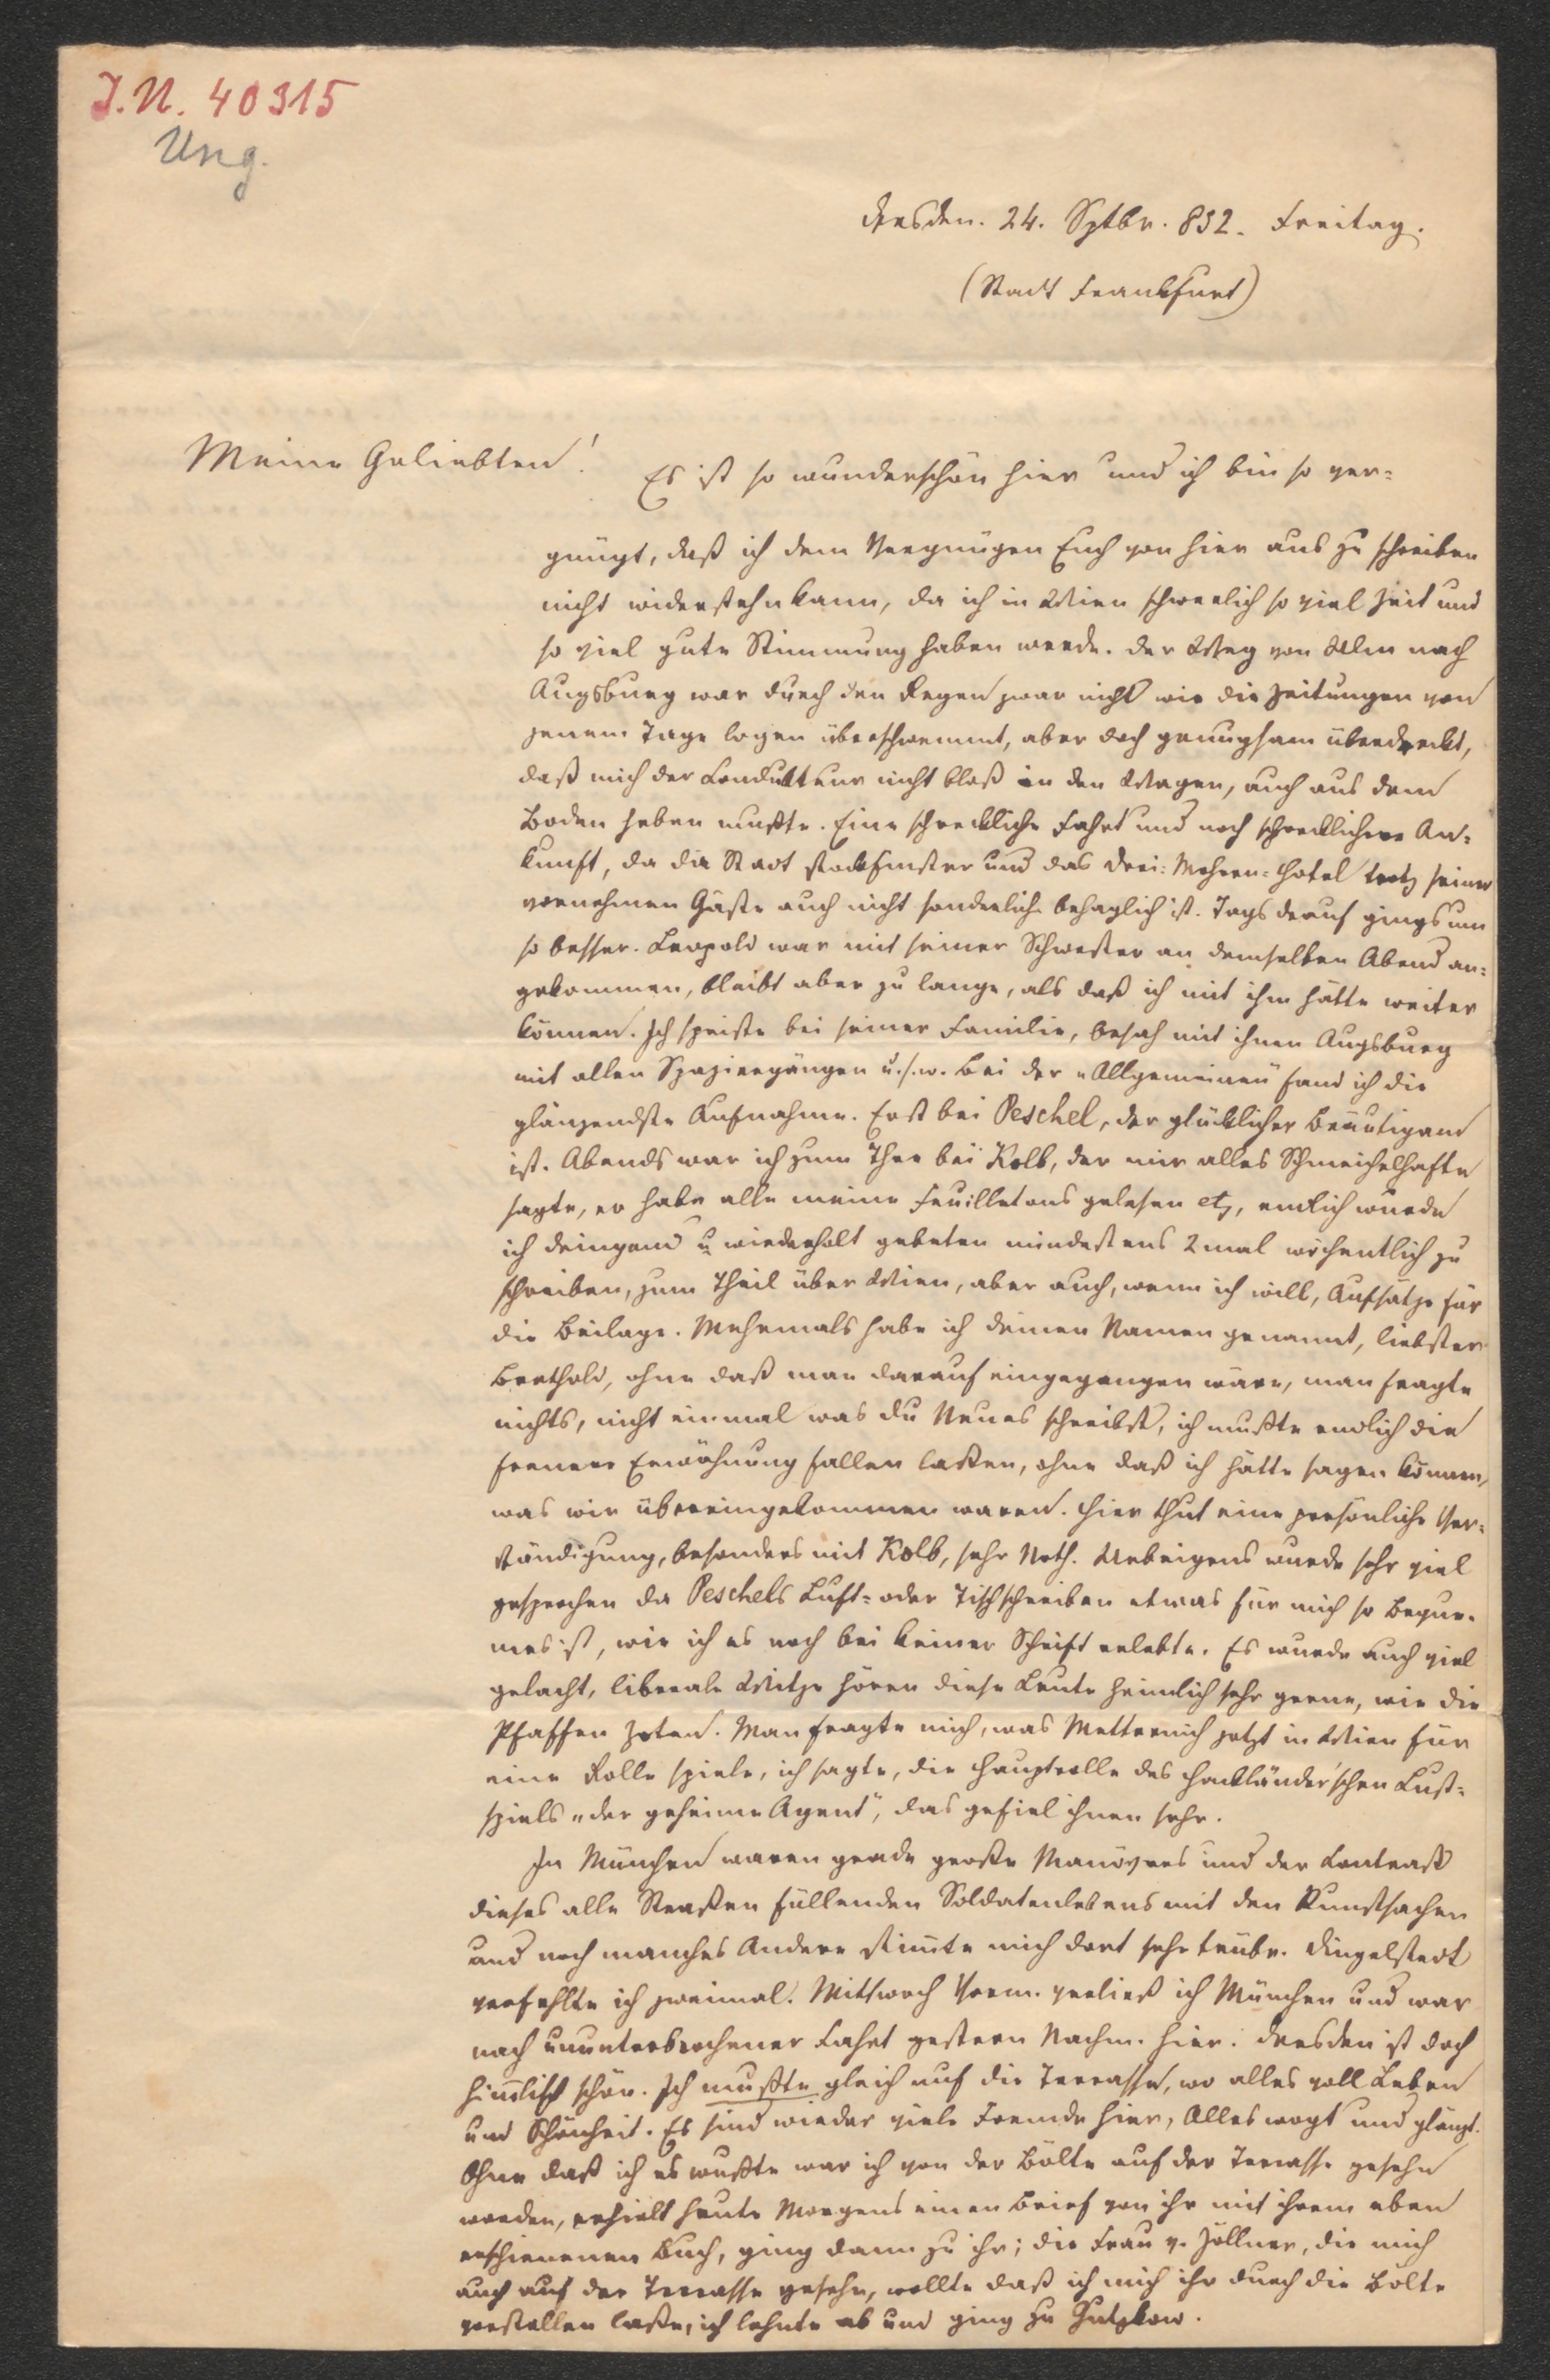 J.N. 40315
Ung.
Dresden. 24. Sptbr. 852. Freitag.
(Stadt Frankfurt)
Meine Geliebten!
Es ist so wunderschön hier und ich bin so ver-
gnügt, daß ich dem Vergnügen Euch von hier aus zu schreiben
nicht widerstehn kann, da ich in Wien schwerlich so viel Zeit und
so viel gute Stimmung haben werde. Der Weg von Ulm nach
Augsburg war durch den Regen zwar nicht wie die Zeitungen von
jenem Tage logen überschwemmt, aber doch genugsam überdreckt,
daß mich der Condukteur nicht bloß in den Wagen, auch aus dem
Boden heben mußte. Eine schreckliche Fahrt und noch schrecklichere An-
kunft, da die Stadt stockfinster und das Drei-Mohren-Hotel trotz seiner
vornehmen Gäste auch nicht sonderlich behaglich ist. Tags darauf gings um
so besser. Leopold war mit seiner Schwester an demselben Abend an-
gekommen, bleibt aber zu lange, als daß ich mit ihm hätte weiter
können. Ich speiste bei seiner Familie, besah mit ihnen Augsburg
mit allen Spaziergängen u.s.w. Bei der „Allgemeinen" fand ich die
glänzendste Aufnahme. Erst bei Peschel, der glücklicher Bräutigam
ist. Abends war ich zum Thee bei Kolb, der mir alles Schmeichelhafte
sagte, er habe alle meine Feuilletons gelesen etz, endlich wurde
ich dringend u wiederholt gebeten mindestens 2mal wöchentlich zu
schreiben, zum Theil über Wien, aber auch, wenn ich will, Aufsätze für
die Beilage. Mehrmals habe ich deinen Namen genannt, liebster
Berthold, ohne daß man darauf eingegangen wäre, man fragte
nichts, nicht einmal was du Neues schreibst, ich mußte endlich die
fernere Erwähnung fallen laßen, ohne daß ich hätte sagen können,
was wir übereingekommen waren. Hier thut eine persönliche Ver-
ständigung, besonders mit Kolb, sehr Noth. Uebrigens wurde sehr viel
gesprochen da Peschels Luft- oder Tischschreiben etwas für mich so Beque-
mes ist, wie ich es noch bei keiner Schrift erlebte. Es wurde auch viel
gelacht, liberale Witze hören diese Leute heimlich sehr gerne, wie die
Pfaffen Zoten. Man fragte mich, was Metternich jetzt in Wien für
eine Rolle spiele, ich sagte, die Hauptrolle des Hackländer'schen Lust-
spiels „der geheime Agent", das gefiel ihnen sehr.
In München waren grade große Manövres und der Contrast
dieses alle Straßen füllenden Soldatenlebens mit den Kunstsachen
und noch manches Andere stimte mich dort sehr trübe. Dingelstedt
verfehlte ich zweimal. Mittwoch Vorm. verließ ich München und war
nach ununterbrochener Fahrt gestern Nachm. hier. Dresden ist doch
himlisch schön. Ich mußte gleich auf die Terrasse, wo alles voll Leben
und Schönheit. Es sind wieder viele Fremde hier, Alles wogt und glänzt.
Ohne daß ich es wußte war ich von der Bölte auf der Terrasse gesehn
worden, erhielt heute Morgens einen Brief von ihr mit ihrem eben
erschienenen Buch, ging dann zu ihr; die Frau v. Zöllner, die mich
auch auf der Terrasse gesehn, wollte daß ich mich ihr durch die Bölte
vorstellen laße, ich lehnte ab und ging zu Gutzkow.